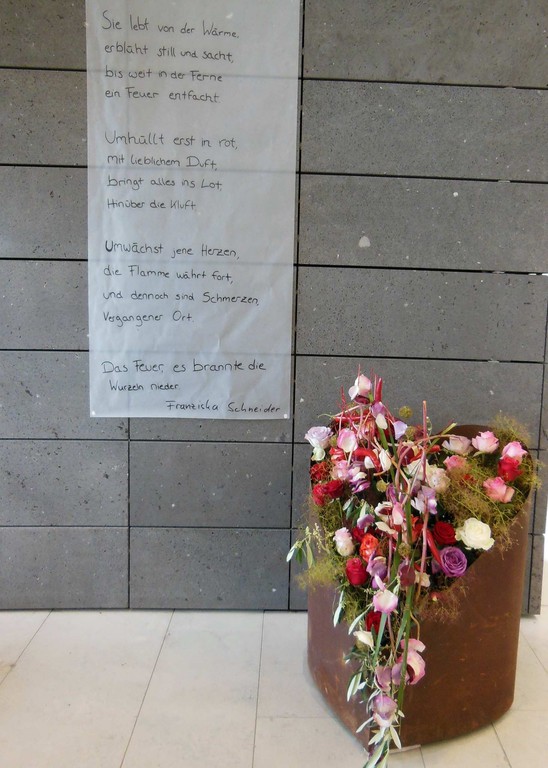 Sie lebt von der Wärme,
erblüht still und sacht,
bis weit in der Ferne
ein Feuer entfacht.
Umhüllt erst in rot,
mit lieblichem Duft,
bringt alles ins Lot,
Hinüber die Kluft.
Umwächst jene Herzen,
die Flamme währt fort,
und dennoch sind Schmerzen,
Vergangener Ort.
Das Feuer, es brannte die
Wurzeln nieder.
Franziska Schneider